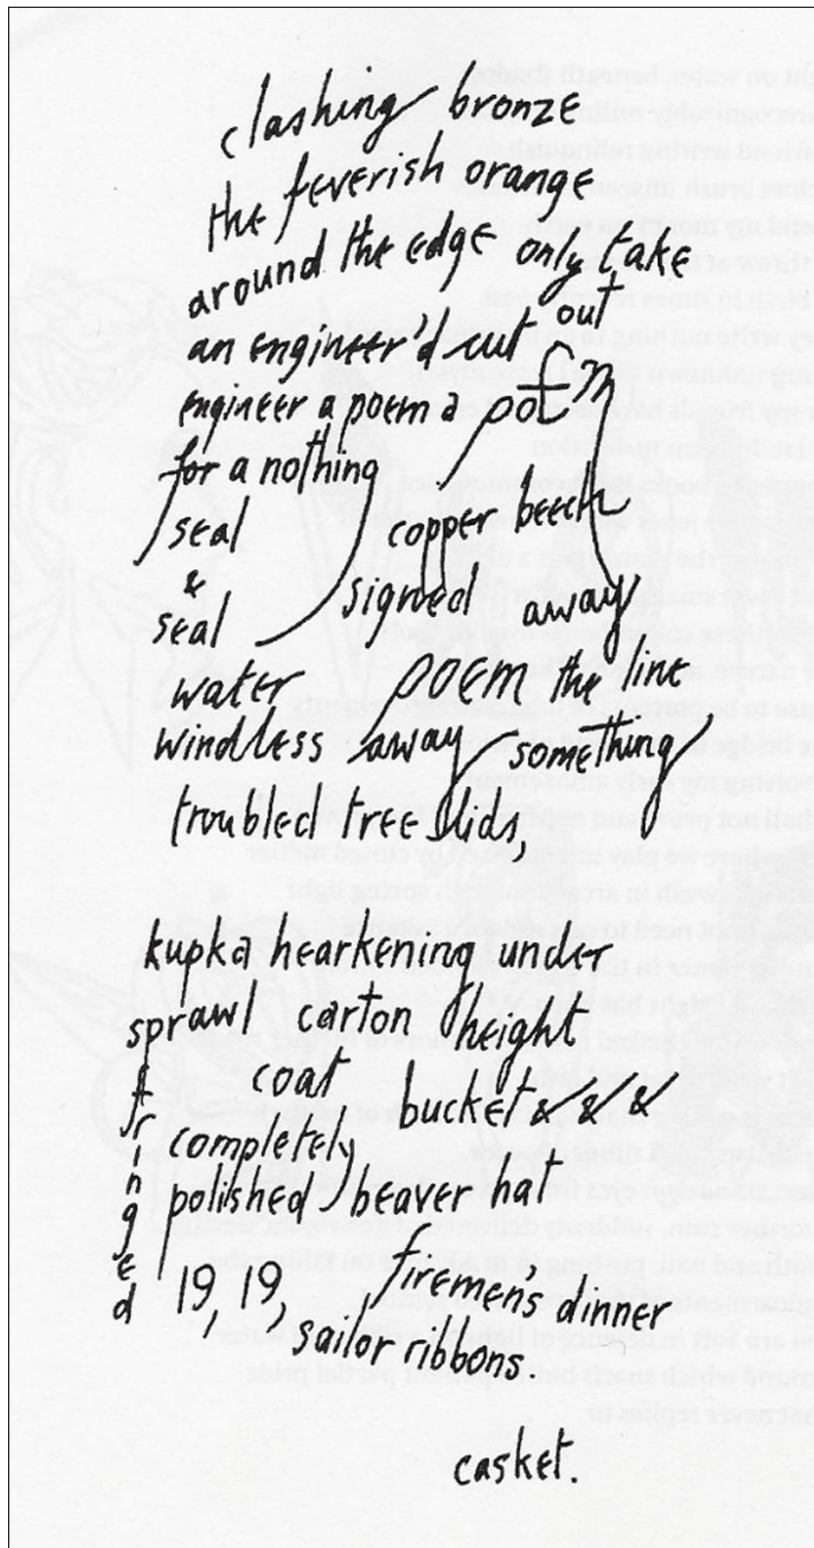 clashing bronze
the feverish orange
around the edge only take
an engineer'd cut out
engineer a poem a poem
for a nothing
seal copper beech
&
seal signed away
water poem the line
windless away something
troubled tree lids,
kupka hearkening under
sprawl carton height
coat bucket & & &
fringed
completely
polished beaver hat
19, 19, firemen's dinner
sailor ribbons.
casket.